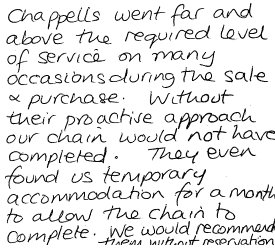 Chappells went far and
above the required level
of service on many
occasions during the sale
& purchase. Without
their proactive approach
our chain would not have
completed. They even
found us temporary
accommodation for a month
to allow the chain to
complete. We would recommend
them without reservation